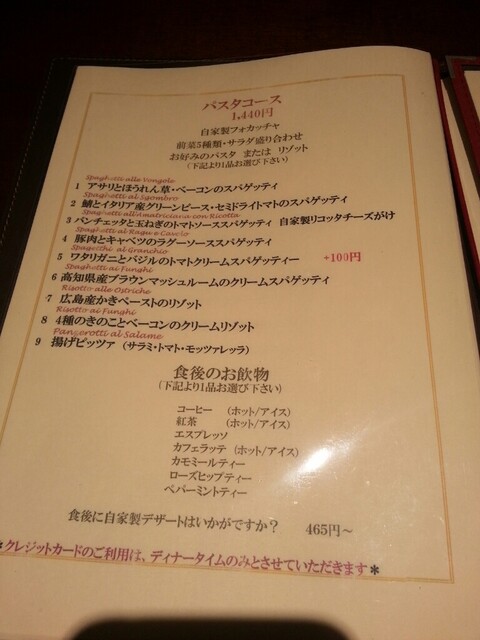 パスタコース
1,440円
自家製フォカッチャ
前菜5種類・サラダ盛り合わせ
お好みのパスタ または リゾット
(下記より1品お選び下さい)
Spaghetti alle Vongole
1 アサリとほうれん草・ベーコンのスパゲッティ
Spaghetti al Sgombro
2 鯖とイタリア産グリーンピース・セミドライトマトのスパゲッティ
Spaghetti all'Amatriciana con Ricotta
3 パンチェッタと玉ねぎのトマトソーススパゲッティ 自家製リコッタチーズがけ
Spaghetti al Ragu e Cavolo
4 豚肉とキャベツのラグーソーススパゲッティ
Spaghetti al Granchio
5 ワタリガニとバジルのトマトクリームスパゲッティー +100円
Spaghetti ai Funghi
6 高知県産ブラウンマッシュルームのクリームスパゲティ
Risotto alle Ostriche
7 広島産かきペーストのリゾット
Risotto ai Funghi
8 4種のきのことベーコンのクリームリゾット
Panzerotti al Salame
9 揚げピッツァ (サラミ・トマト・モッツァレッラ)
食後のお飲物
(下記より1品お選び下さい)
コーヒー (ホット/アイス)
紅茶 (ホット/アイス)
エスプレッソ
カフェラッテ (ホット/アイス)
カモミールティー
ローズヒップティー
ペパーミントティー
食後に自家製デザートはいかがですか? 465円~
*クレジットカードのご利用は、ディナータイムのみとさせていただきます*